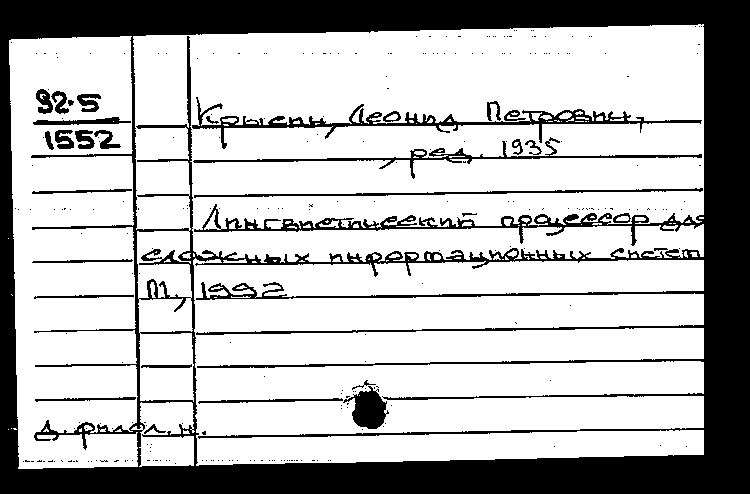 92-5
1552
Крысин, Леонид Петрович,
, ред. 1935
Лингвистический процессор для
сложных информационных систем
М, 1992
д. филол. н.